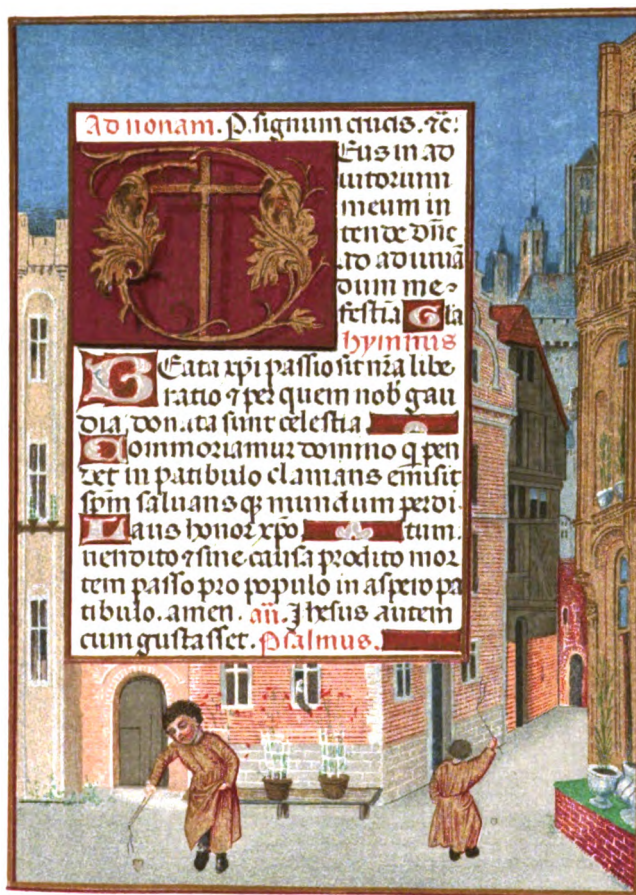 Ad nonam. P. signum crucis. ⁊c̄:
Deus in ad
iutorium
meum in
tende dn̄e
ad adiuuā
dum me
festīa Gla
hymnus
Beata xp̄i passio sit nr̄a libe
ratio ⁊ per quem nob̄ gau
dia donata sunt celestia
Commoriamur domino q̄ pen
det in patibulo clamans emisit
sp̄m saluans q̄ mundum perdi
Laus honor xp̄o tum.
uendito ⁊ sine causa prodito mor
tem passo pro populo in aspero pa
tibulo. amen. añ. Jhesus autem
cum gustasset. Psalmus.